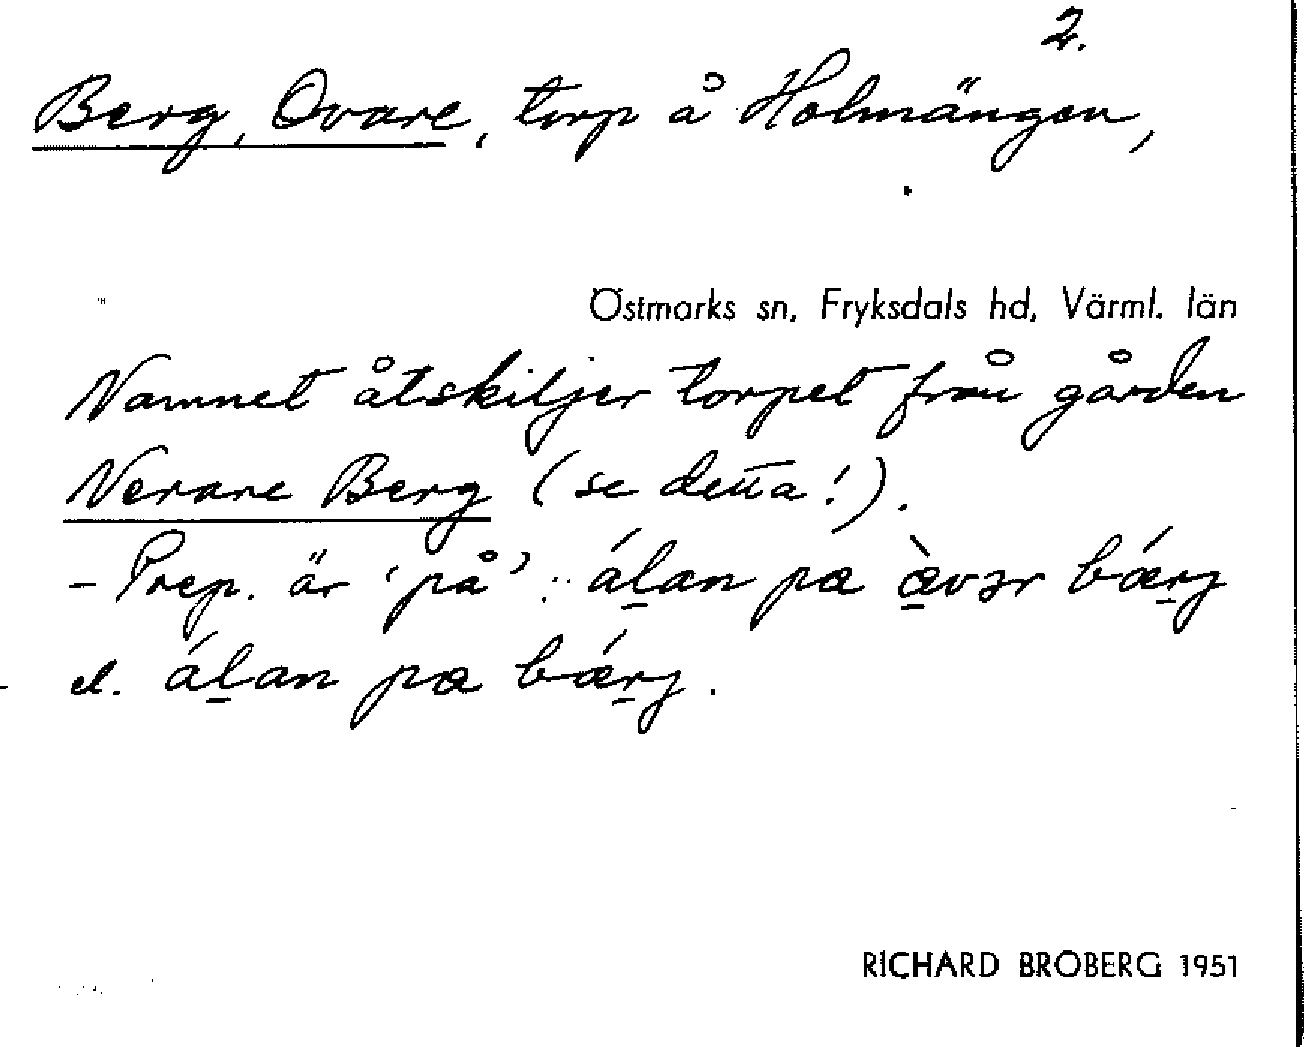 2.
Berg, Ovare, torp å Holmängen,
Östmarks sn, Fryksdals hd, Värml. län
Namnet åtskiljer torpet från gården
Nerare Berg (se detta!).
- Prep. är 'på': álan pa àvər bǽrj
el. álan pa bǽrj.
RICHARD BROBERG 1951